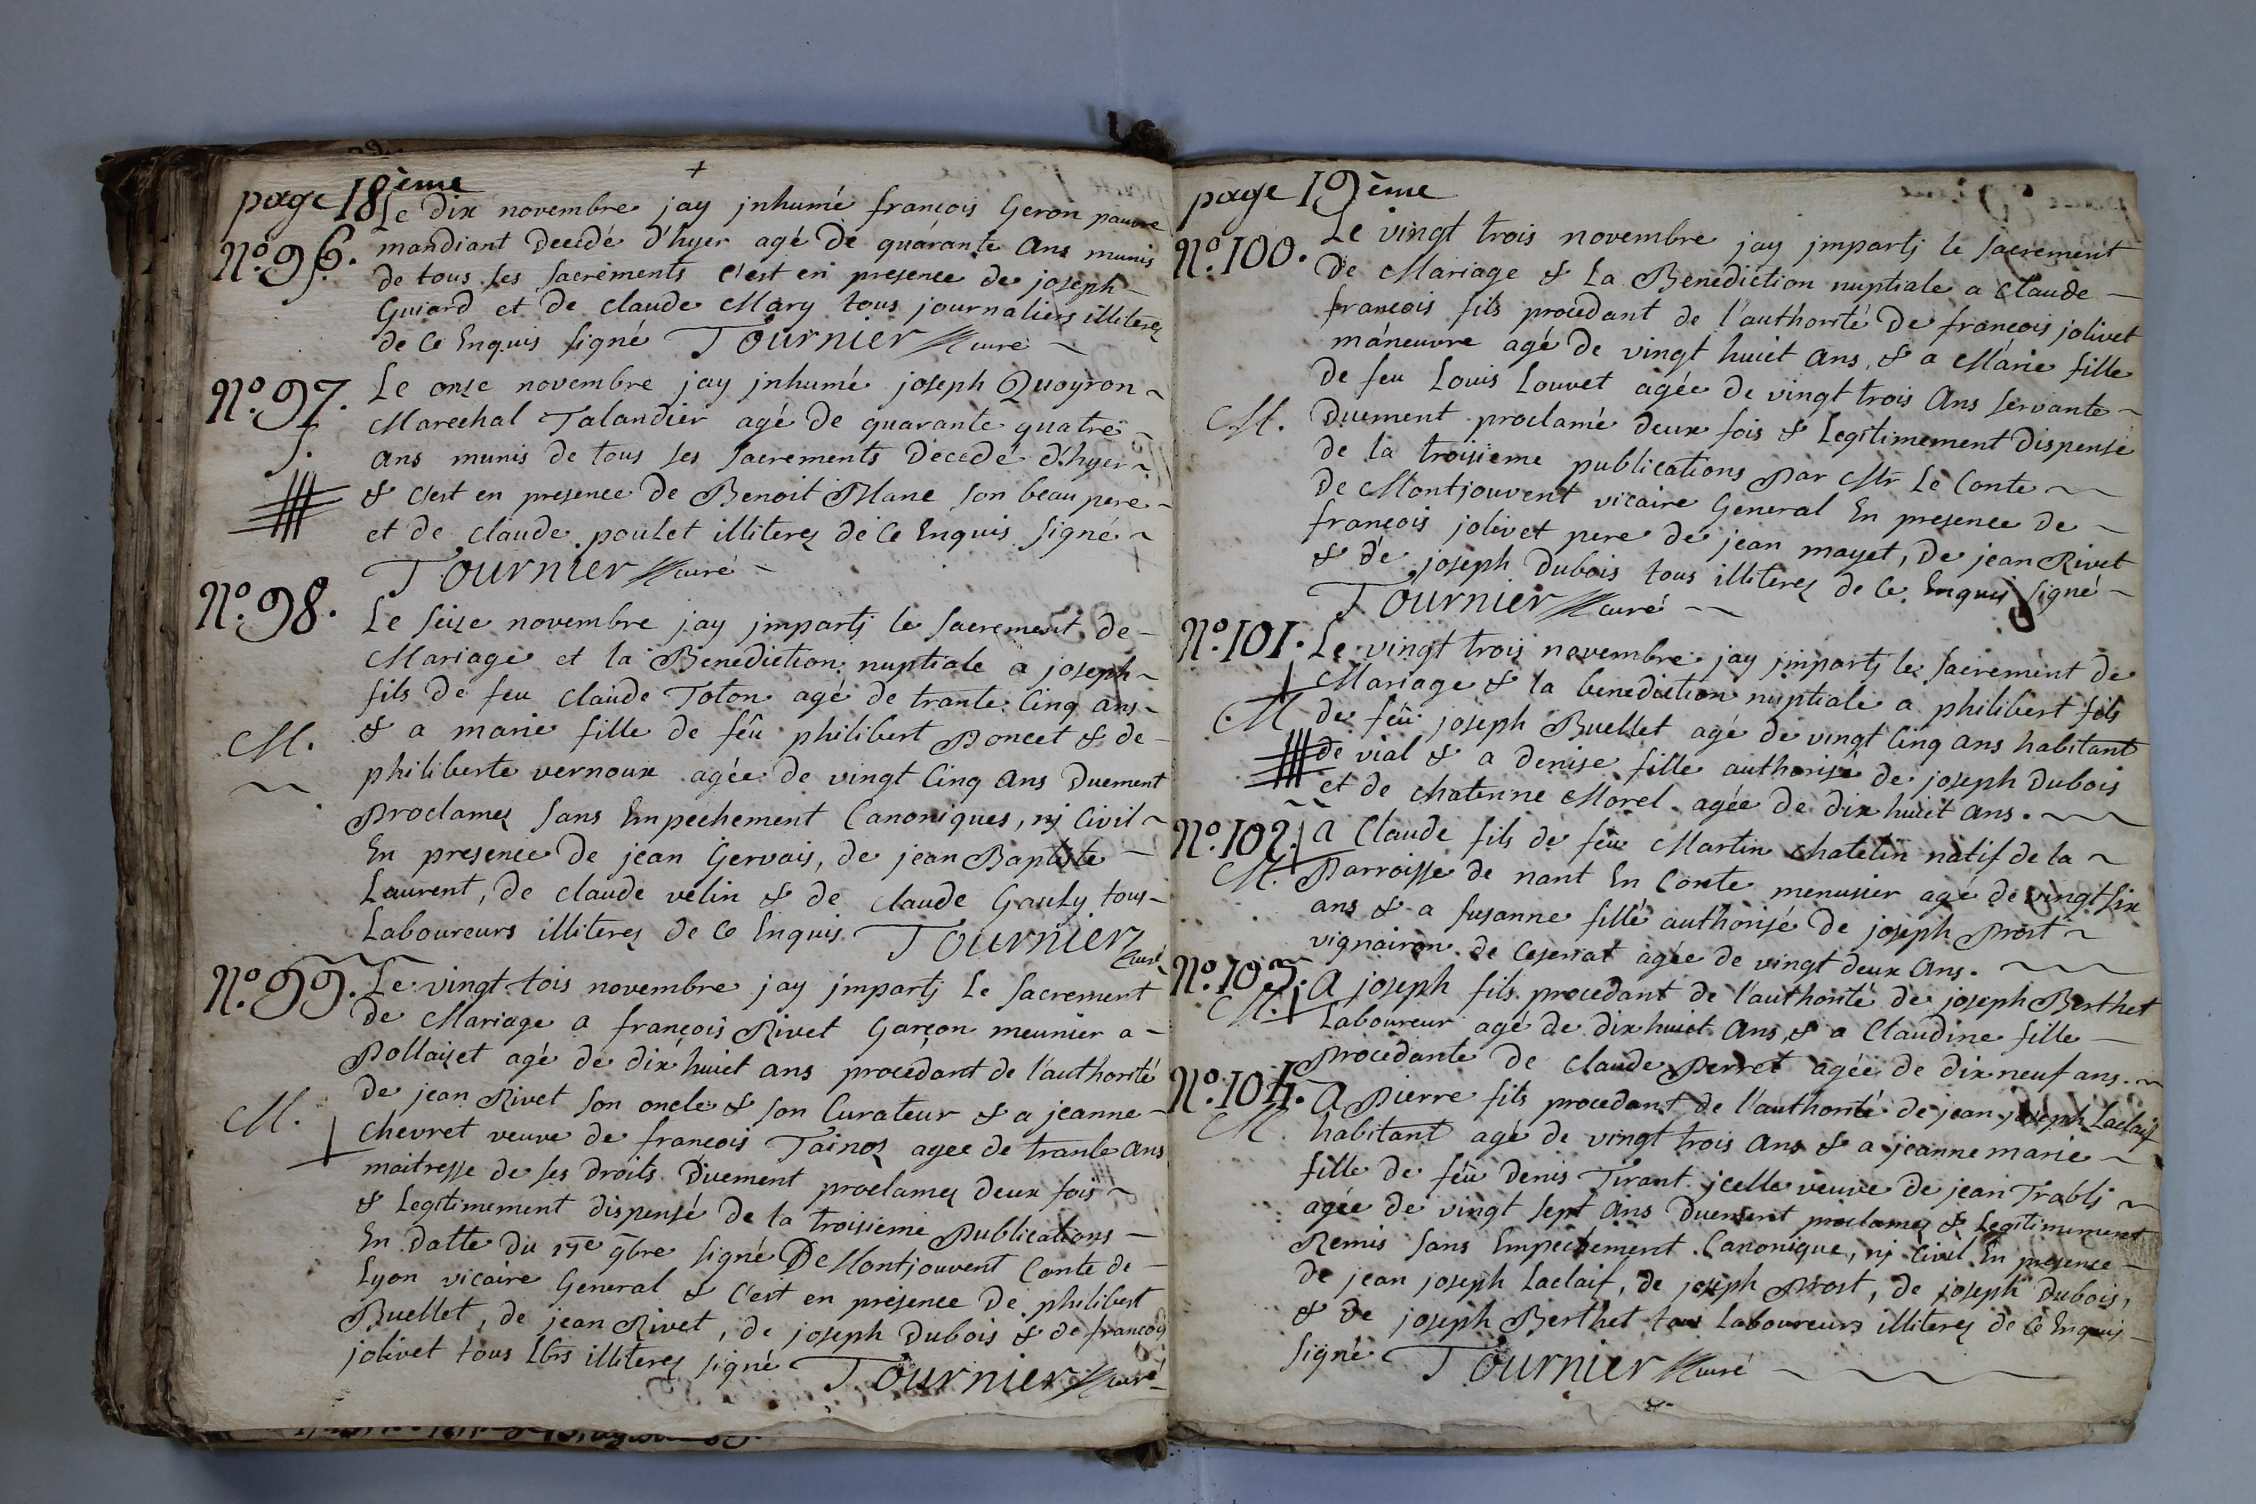 page 18ème
Nº.96. Le dix novembre jay jnhumé francois Geron pauvre
mandiant decedé d'hyer agé de quarante ans munis
de tous ses sacréments c'est en presence de joseph
Guiard et de claude Mary tous journaliers illiterez
de ce Enquis signé Tournier curé
Nº.97. Le onze novembre jay jnhumé joseph Quoyron
Marechal Talandier agé de quarante quatre
ans munis de tous ses sacrements decedé d'hyer
& c'est en presence de Benoit Blanc son beau pere
et de claude poulet illiterez de ce Enquis signé
Tournier curé
Nº.98. Le seize novembre jay jmpartj le sacrement de
Mariage et la Benediction nuptiale a joseph
fils de feu claude Toton agé de trante cinq ans
M. & a marie fille de feû philibert Poncet & de
philiberte vernoux agée de vingt cinq ans Duement
Proclamez sans Empechement Canoniques, nj Civil
En presence de jean Gervais, de jean Baptiste
Laurent, de claude velin & de claude Gauly tous
Laboureurs illiterez de ce Enquis Tournier curé
Nº.99. Le vingt tois novembre jay jmpartj Le sacrement
de Mariage a françois Rivet Garçon meunier a
Pollaizet agé de dix huict ans procedant de l'authorité
de jean Rivet son oncle & son Curateur & a jeanne
M. chevret veuve de francois Tainoz agee de trante ans
maitresse de ses droits Duement proclamez deux fois
& Legitimement dispensé de la troisieme Publications
En datte du 17e 9bre signé De Montjouvent Conte de
Lyon vicaire General & C'est en presence de philibert
Buellet, de jean Rivet, de joseph Dubois & de francois
jolivet tous Lbrs illiterez signé Tournier curé
page 19ème
Nº.100. Le vingt trois novembre jay jmpartj le sacrement
de Mariage & La Benediction nuptiale a Claude
francois fils procedant de l'authorité De francois jolivet
máneuvre agé de vingt huict ans, & a Marie fille
de feu Louis Louvet agée de vingt trois Ans servante
M. Duement proclamé deux fois & Legitimement Dispensé
de la troisieme publications Par Mr Le Conte
de Montjouvent vicaire General En presence de
françois jolivet pere de jean mayet, de jean Rivet
& de joseph Dubois tous illiterez de ce Enquis signé
Tournier curé
Nº.101. Le vingt trois novembre jay jmpartj le sacrement de
Mariage & la benediction nuptiale a philibert fils
M de feû joseph Buellet agé de vingt cinq ans habitant
de vial & a denise fille authorisé de joseph Dubois
et de chatenne Morel agée de dix huict ans.
Nº.102. A Claude fils de feu Martin chatelin natif de la
M. Parroisse de nant En Conte menusier agé de vingt six
ans & a susanne fille authorisé de joseph Prost
vignairon de Ceseriat agée de vingt deux ans.
Nº.103. A joseph fils procedant de l'authorité de joseph Berthet
M. Laboureur agé de dix huict ans, & a Claudine fille
procedante de claude Perret agée de dix neuf ans.
Nº.104. A Pierre fils procedant de l'authorité de jean joseph Laclaif
M. habitant agé de vingt trois Ans & a jeanne marie
fille de feû Denis Tirant jcelle veuve de jean Trablj
agée de vingt sept Ans Duement proclamez & Legitimement
Remis sans Empechement Canonique, nj Civil En presence
de jean joseph Laclaif, de joseph Prost, de joseph Dubois,
& de joseph Berthet tous Laboureurs illiterez de ce Enquis
signé Tournier curé